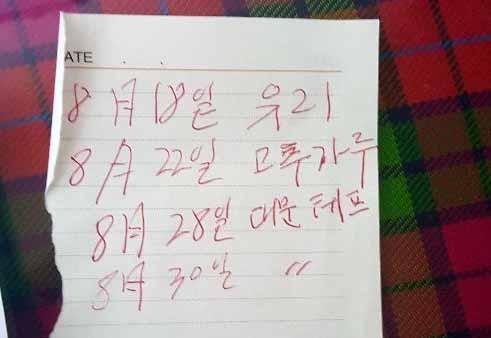 ATE . .
8月 18일 유리
8月 22일 고추가루
8月 28일 대문 테프
8月 30일 〃